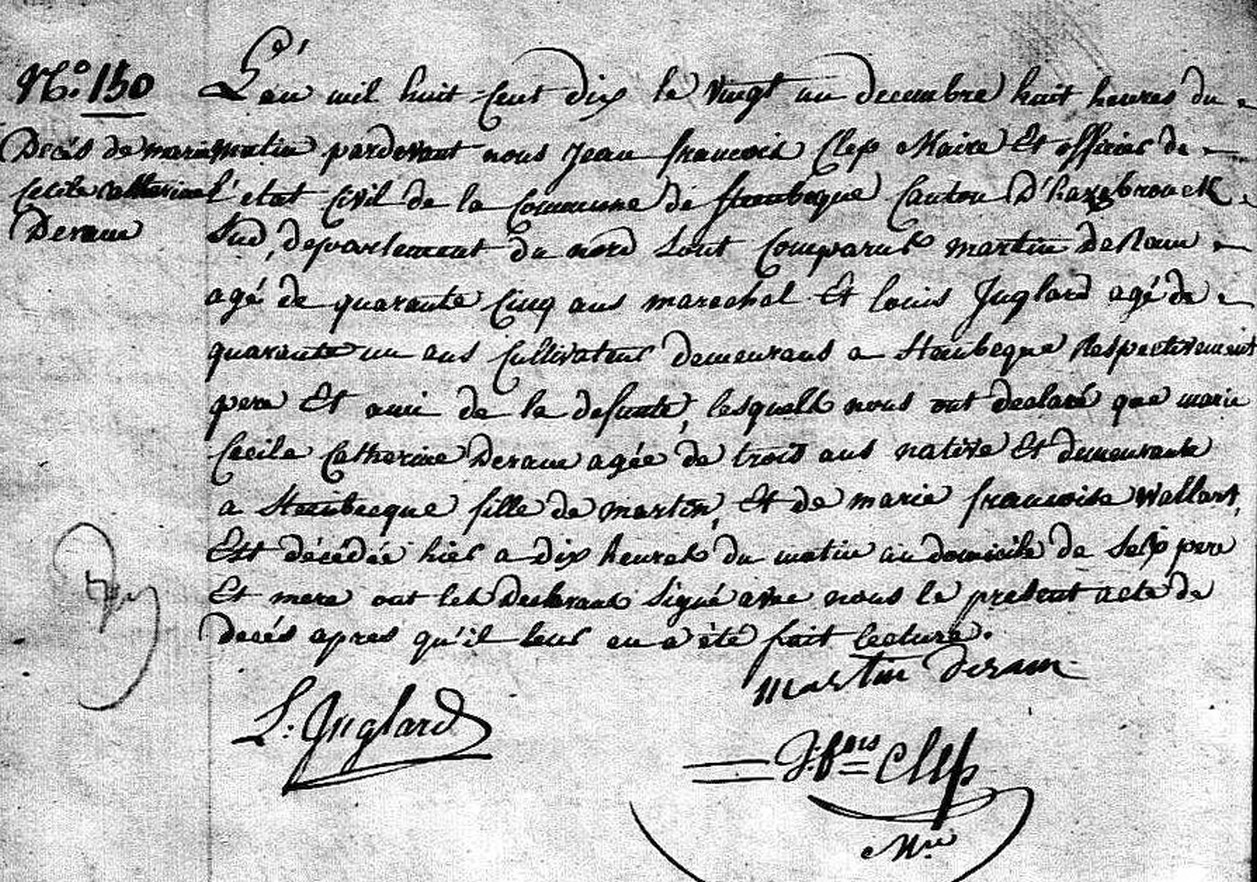 N.o 150
Decés de marie
Cecile catherine
Deram
L'an mil huit-cent dix le vingt un decembre huit heures du
matin pardevant nous Jean francois Clep Maire Et officier de
l'etat civil de la Commune de Steenbeque Canton D'hazebrouck
Sud, departement du nord sont Comparut martin DeRam
agé de quarante Cinq ans marechal Et louis Juglard agé de
quarante un ans Cultivateur demeurans a Steenbeque Respectivement
pere Et ami de la defunte, lesquels nous ont declaré que marie
Cecile Catherine Deram agée de trois ans native Et demeurante
a Steenbecque fille de martin, Et de marie francoise Wallart,
Est décédée hier a dix heures du matin au domicile de pere
Et mere ont les Declarant signé avec nous le present acte de
decés apres qu'il leur en a été fait lecture.
martin deram
L. Juglard
J. f.ois Clep
Mre